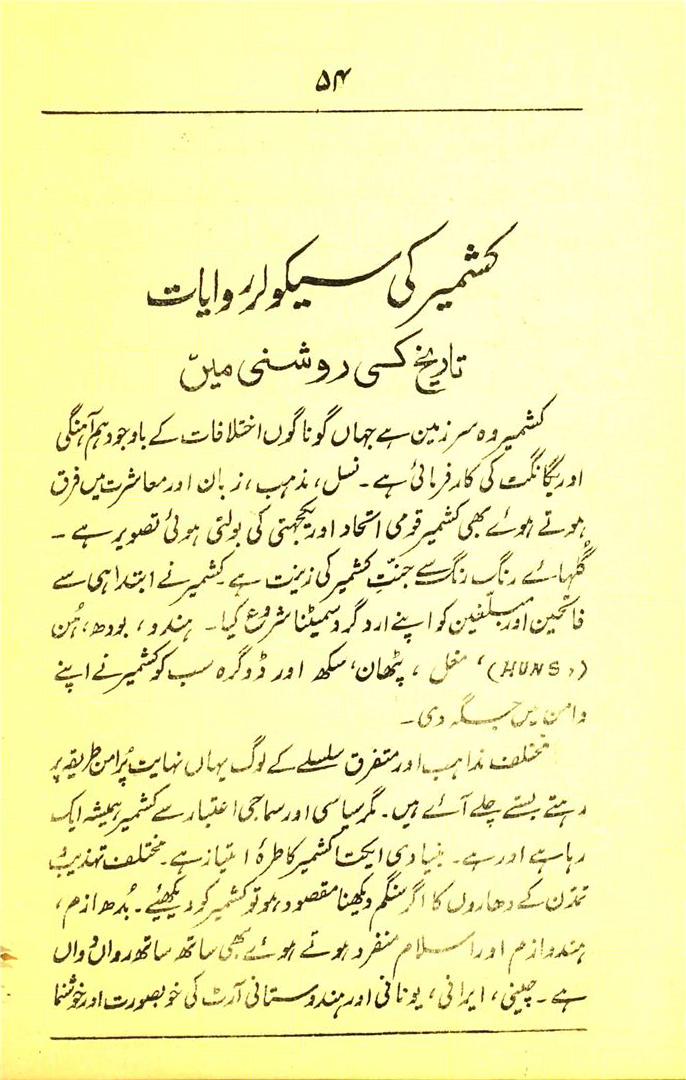 ۵۴
کشمیر کی سیکولر روایات
تاریخ کی روشنی میں
کشمیر وہ سرزمین ہے جہاں گوناگوں اختلافات کے باوجود ہم آہنگی
اور یگانگت کی کارفرمائی ہے۔ نسل، مذہب، زبان اور معاشرت میں فرق
ہوتے ہوئے بھی کشمیر قومی اتحاد اور یکجہتی کی بولتی ہوئی تصویر ہے ۔
گلہائے رنگ رنگ سے جنتِ کشمیر کی زینت ہے۔ کشمیر نے ابتدا ہی سے
فاتحین اور مبلغین کو اپنے اردگرد سمیٹنا شروع کیا۔ ہندو، بودھ، ہُن
(HUNS)، مغل، پٹھان، سکھ اور ڈوگرہ سب کو کشمیر نے اپنے
دامن میں جگہ دی۔
مختلف مذاہب اور متفرق سلسلے کے لوگ یہاں نہایت پُرامن طریقہ پر
رہتے بستے چلے آئے ہیں۔ مگر سیاسی اور سماجی اعتبار سے کشمیر ہمیشہ ایک
رہا ہے اور ہے۔ بنیادی ایکتا کشمیر کا طرۂ امتیاز ہے۔ مختلف تہذیب و
تمدّن کے دھاروں کا اگر سنگم دیکھنا مقصود ہو تو کشمیر کو دیکھیے۔ بُدھ ازم،
ہندو ازم اور اسلام منفرد ہوتے ہوئے بھی ساتھ ساتھ رواں دواں
ہے۔ چینی، ایرانی، یونانی اور ہندوستانی آرٹ کی خوبصورت اور خوشنما